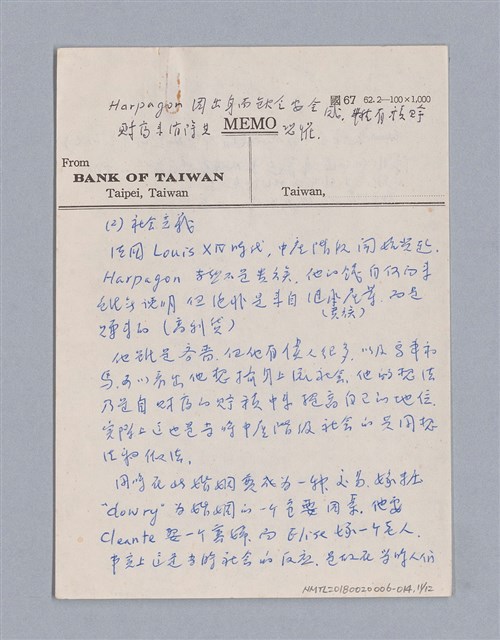 Harpagon 因出身而缺乏安全感. 唯有積貯
國67 62.2—100×1,000
財商來保障其
MEMO
From
BANK OF TAIWAN
Taipei, Taiwan
Taiwan,
(2) 社會意義
法國 Louis XIV 時代, 中產階級開始崛起.
Harpagon 當然不是貴族. 他的錢自何而來
但絕非是來自 遺產 而是
(貴族)
賺來的 (高利貸)
他雖是吝嗇. 但他有僕人很多, 以及馬車和
馬. 可以看出他想擠身上流社會. 他的想法
乃是自財商的貯積中來提高自己的地位.
實際上這也是當時中產階級社會的共同想
法和做法.
同時在此婚姻竟成為一種交易. 嫁粧
"dowry" 為婚姻的一個重要因素. 他要
Cleante 娶一個寡婦. 而 Elise 嫁一個老人.
事實上這是當時社會的反應. 是故在當時人們
NMTL20180020006-014, 1/12